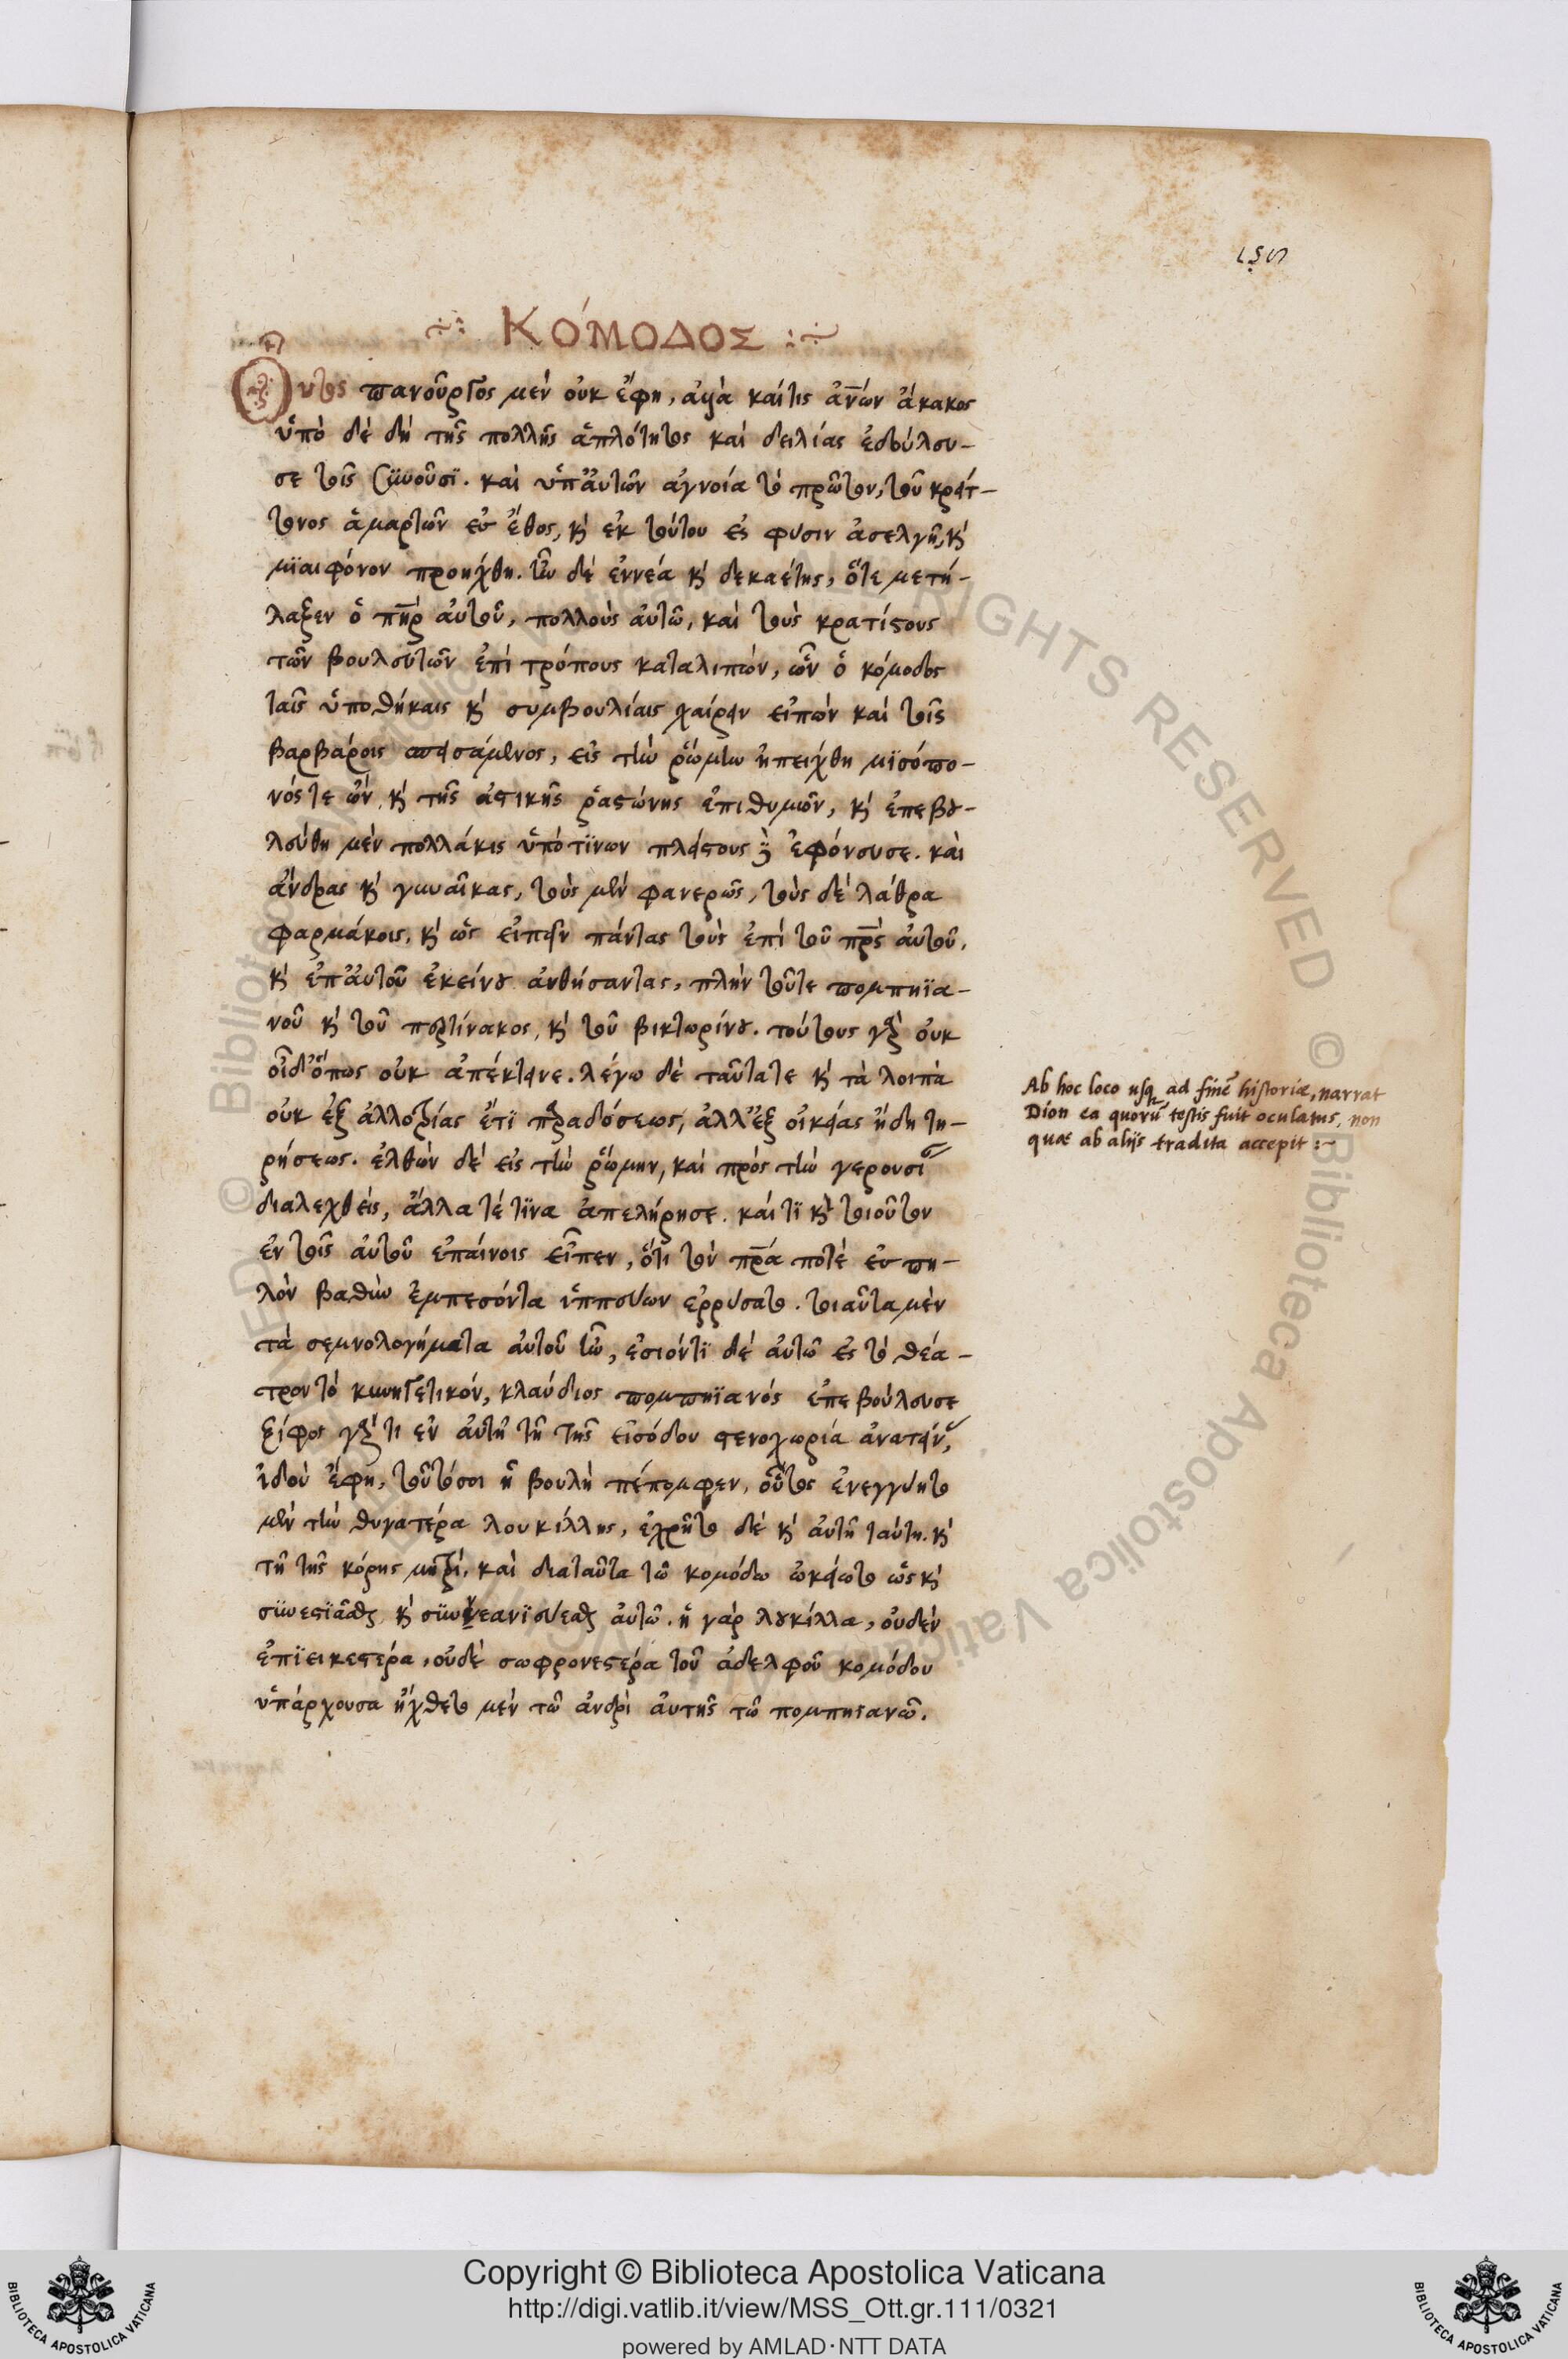 ΚΌΜΟΔΟΣ
Οὗτος πανοῦργος μὲν οὐκ ἔφη, ἀλλὰ καί τις ἀν̅ων ἄκακος
ὑπὸ δὲ δὴ τῆς πολλῆς ἁπλότητος καὶ δειλίας ἐδούλευ-
σε τοῖς συνοῦσϊ. καὶ ὑπ' αὐτῶν ἀγνοία τὸ πρῶτον, τοῦ κρείτ-
τονος ἁμαρτῶν ἐς ἔθος, κ̀ ἐκ τούτου ἐς φύσιν ἀσελγῆ, κ̀
μϊαιφόνον προηχθη. ἦν δὲ ἐννέα κ̀ δεκαέτης, ὅτε μετή-
λαξεν ὁ πη̅ρ αὐτοῦ, πολλοὺς αὐτῶ, καὶ τοὺς κρατίστους
τῶν βουλευτῶν ἐπὶ τρόπους καταλιπών, ὧν ὁ κόμοδος
ταῖς ὑποθήκαις κ̀ συμβουλίαις χαίρειν εἰπὼν καὶ τοῖς
βαρβάροις σπεισάμενος, εἰς τὴν ῥώμην ἠπείχθη μϊσόπο-
νός τε ὢν κ̀ τῆς ἀστικῆς ῥαστώνης ἐπιθυμῶν, κ̀ ἐπεβου-
λεύθη μὲν πολλάκις ὑπό τϊνων πλείστους δὲ ἐφόνευσε. καὶ
ἄνδρας κ̀ γυναῖκας, τοὺς μὲν φανερῶς, τοὺς δὲ λάθρα
φαρμάκοις, κ̀ ὡς εἰπεῖν πάντας τοὺς ἐπὶ τοῦ πρ̅ς αὐτοῦ,
κ̀ ἐπ' αὐτοῦ ἐκείνου ἀνθήσαντας, πλὴν τοῦ τε πομπηϊα-
νοῦ κ̀ τοῦ περτίνακος, κ̀ τοῦ βικτωρίνου. τούτους γὰρ οὐκ
οἶδ' ὅπως οὐκ ἀπέκτεινε. λέγω δὲ ταῦτα τε κ̀ τὰ λοιπὰ
οὐκ ἐξ ἀλλοτρίας ἔτϊ παραδόσεως, ἀλλ' ἐξ οἰκείας ἤδη τη-
ρήσεως. ἐλθὼν δὲ εἰς τὴν ῥώμην, καὶ πρὸς τὴν γερουσίαν
διαλεχθείς, ἄλλα τέ τϊνα ἀπελήρησε. καί τϊ κ̀ τοιοῦτον
ἐν τοῖς αὐτοῦ ἐπαίνοις εἶπεν, ὅτι τὸν πρ̅α ποτὲ ἐς πη-
λὸν βαθὺν ἐμπεσόντα ἱππεύων ἐρρύσατο. τοιαῦτα μὲν
τὰ σεμνολογήματα αὐτοῦ ἦν, ἐσιόντϊ δὲ αὐτῶ ἐς τὸ θέα-
τρον τὸ κυνηγετικόν, κλαύδιος πομπηϊανός ἐπεβούλευσε
ξίφος γάρ τι ἐν αὐτῆ τῆ τῆς εἰσόδου στενοχωρία ἀνατείνας,
ἰδοὺ ἔφη, τοῦτό σοι ἡ βουλὴ πέπομφεν, οὗτος ἐνεγγύητο
μὲν τὴν θυγατέρα λουκίλλης, ἐχρῆτο δὲ κ̀ αὐτῆ ταύτη. κ̀
τῆ τῆς κόρης μητρί, καὶ διαταῦτα τῶ κομόδω ὠκείωτο ὡς κ̀
συνεστϊᾶσθαι κ̀ συννεανϊεύεσθαι αὐτῶ. ἡ γὰρ λουκίλλα, οὐδὲν
ἐπϊεικεστέρα, οὐδὲ σωφρονεστέρα τοῦ ἀδελφοῦ κομόδου
ὑπάρχουσα ἤχθετο μὲν τῶ ἀνδρὶ αὐτῆς τῶ πομπηιανῶ.
Ab hoc loco usq ad finē historiæ, narrat
Dion ea quorū testis fuit oculatus, non
quæ ab aliis tradita accepit :~
© Biblioteca Apostolica Vaticana ALL RIGHTS RESERVED
Copyright © Biblioteca Apostolica Vaticana
http://digi.vatlib.it/view/MSS_Ott.gr.111/0321
powered by AMLAD·NTT DATA
BIBLIOTECA APOSTOLICA VATICANA
BIBLIOTECA APOSTOLICA VATICANA